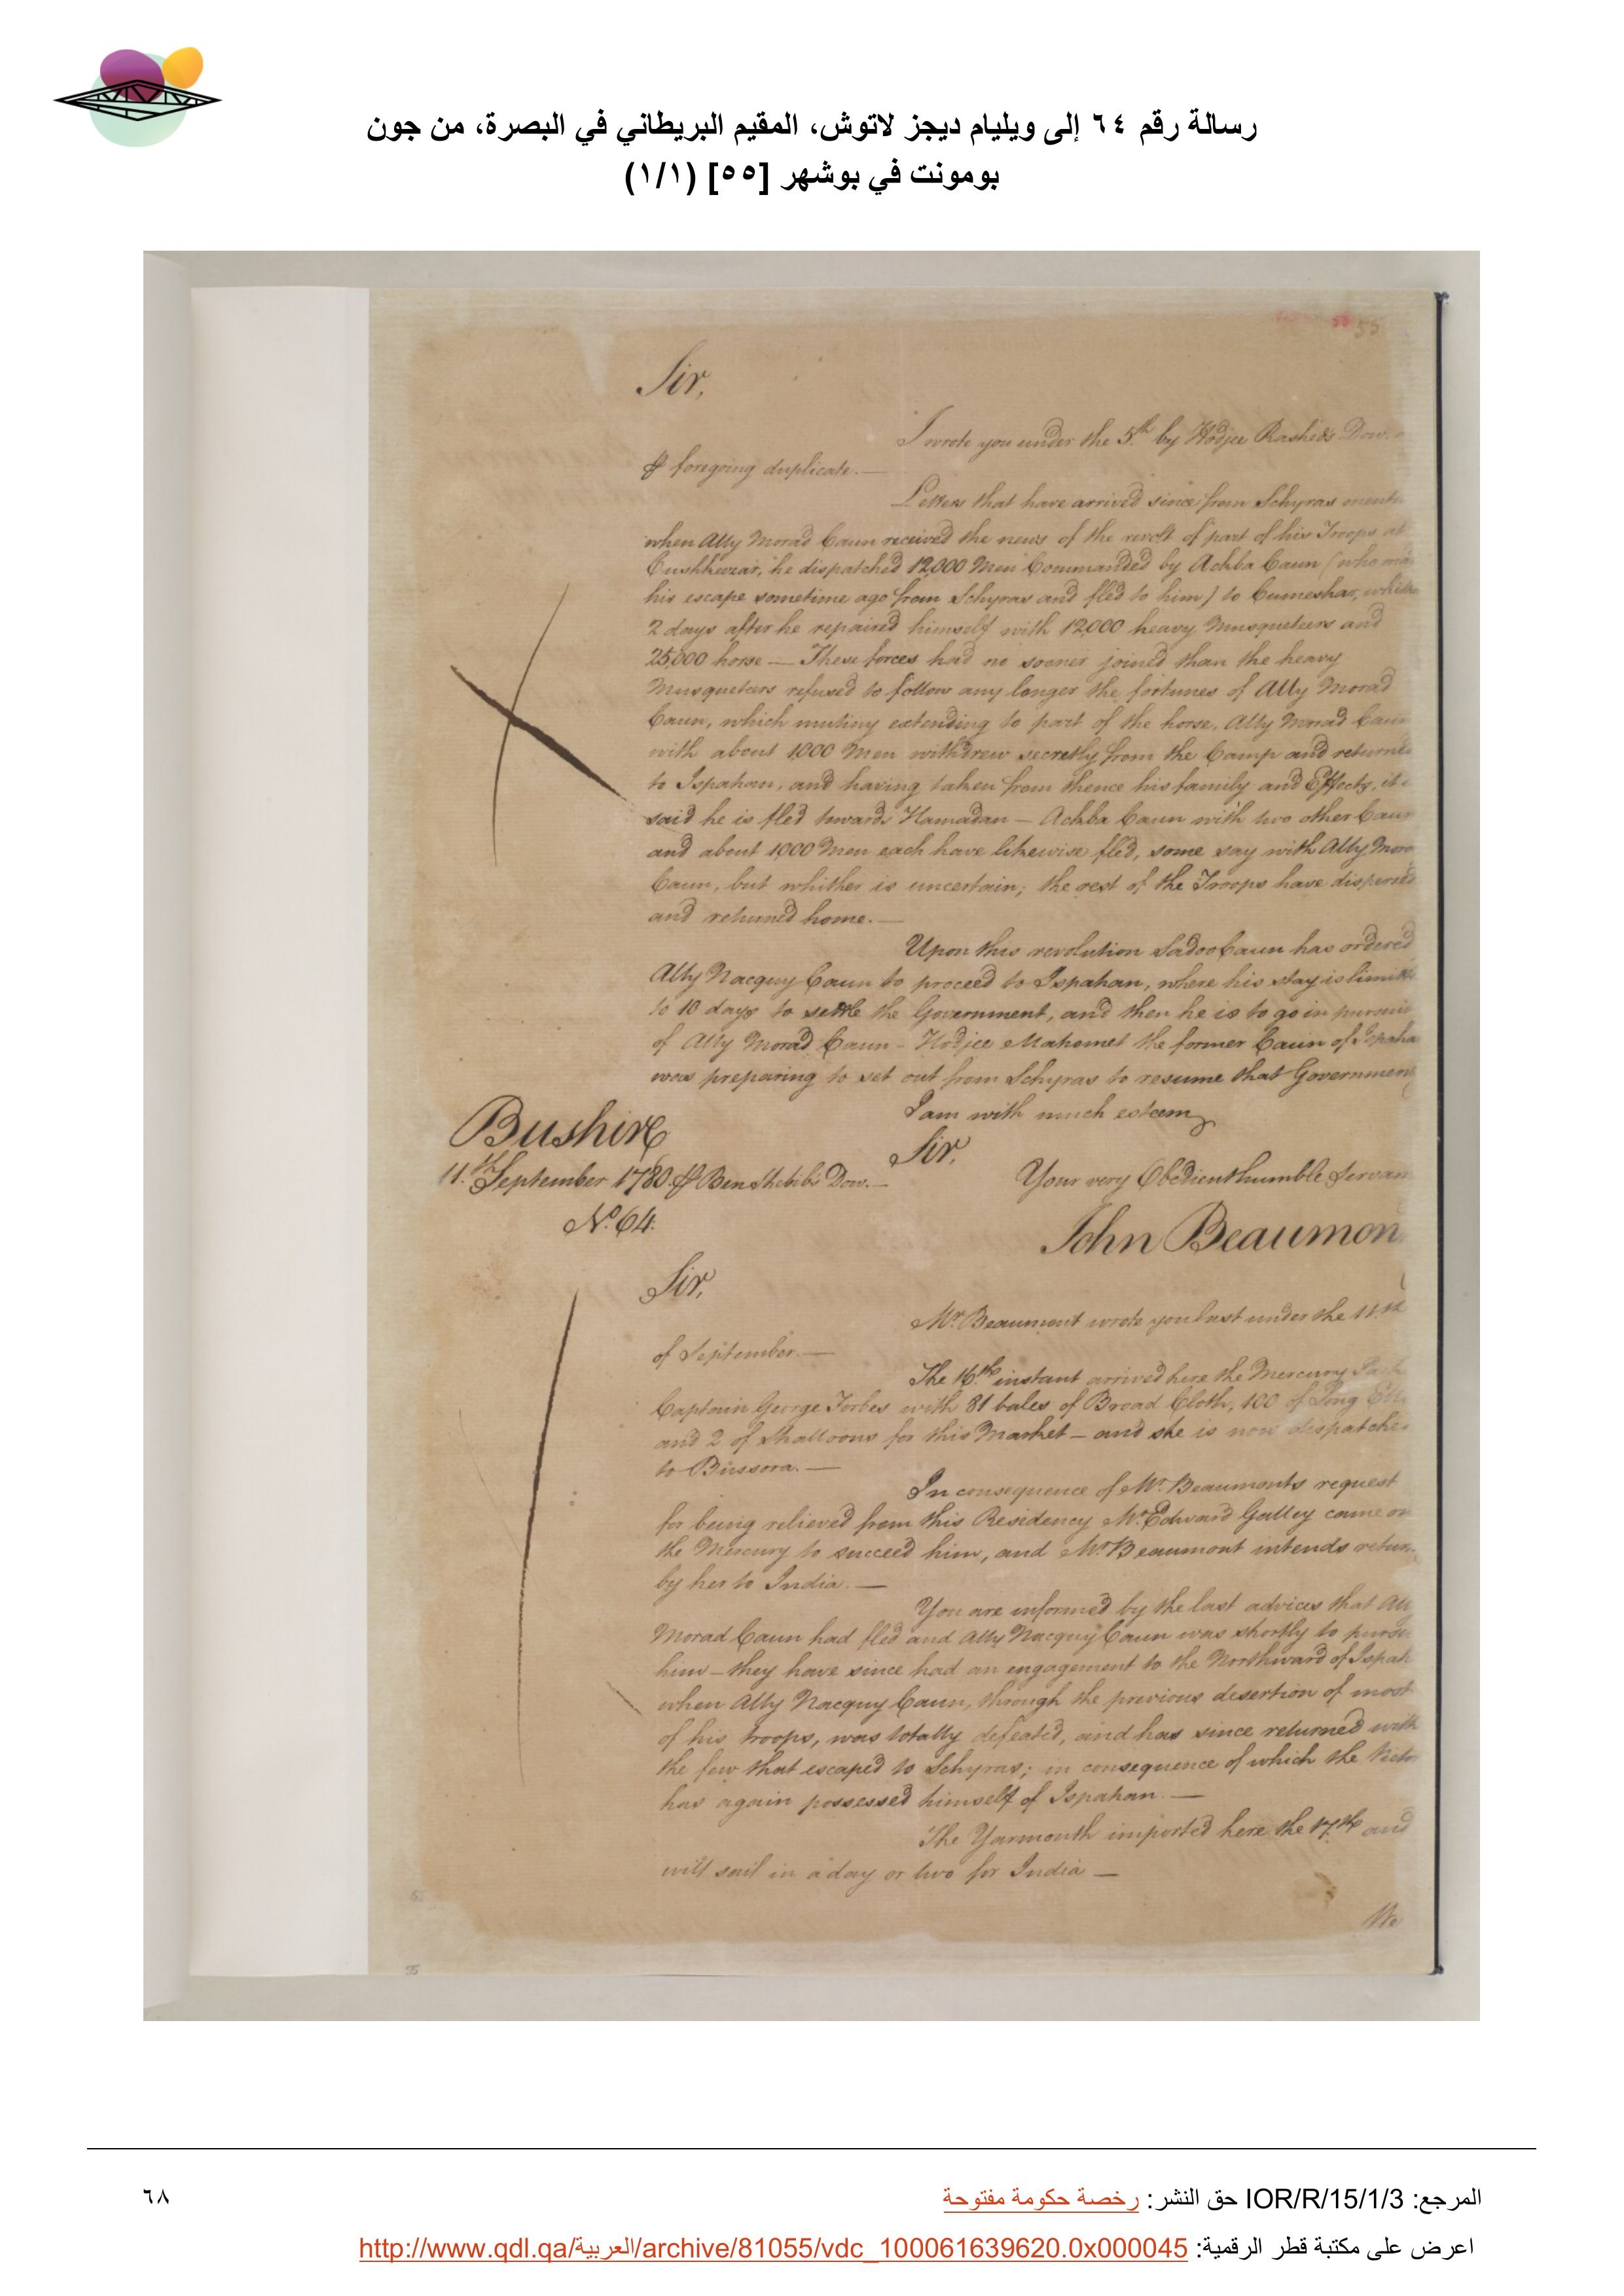 رسالة رقم ٦٤ إلى ويليام ديجز لاتوش، المقيم البريطاني في البصرة، من جون
بومونت في بوشهر [٥٥] (١/١)
55
Sir,
I wrote you under the 5th by Hodjee Rasheds
⅌ foregoing duplicate.—
Letters that have arrived since from Schyras
when Ally Morad Caun received the news of the revolt of part of his Troops at
he dispatched 12,000 Men Commanded by Achba Caun (who
his escape sometime ago from Schyras and fled to him) to Cumeshar,
2 days after he repaired himself with 12,000 heavy Musqueteers and
25,000 horse — These forces had no sooner joined than the heavy
Musqueteers refused to follow any longer the fortunes of Ally Morad
Caun, which mutiny extending to part of the horse, Ally Morad Caun
with about 1,000 Men withdrew secretly from the Camp and returned
to Ispahan, and having taken from thence his family and Effects, it
said he is fled towards Hamadan — Achba Caun with two other
and about 1,000 Men each have likewise fled, some say with Ally
Caun, but whither is uncertain; the rest of the Troops have dispersed
and returned home.—
Upon this revolution Sadoo Caun has ordered
Ally Nacquy Caun to proceed to Ispahan, where his stay is
to 10 days to settle the Government, and then he is to go in
of Ally Morad Caun - Hodjee Mahomet the former Caun of
was preparing to set out from Schyras to resume that Government
I am with much esteem
Sir,
Bushire
11th September 1780. ⅌ Ben Dow.—
Your very Obedient humble
No. 64.
John Beaumon
Sir,
Mr. Beaumont wrote you last under the 11th
of September.—
The 16th instant arrived here the Mercury
Captain George Forbes with 81 bales of Broad Cloth, 100 of Long
and 2 of Shalloons for this Market — and she is now
to Bussora.—
In consequence of Mr. Beaumonts request
for being relieved from this Residency Mr. Edward Galley came on
the Mercury to succeed him, and Mr. Beaumont intends
by her to India.—
You are informed by the last advices that
Morad Caun had fled and Ally Nacquy Caun was shortly to
him — they have since had an engagement to the Northward of
when Ally Nacquy Caun, through the previous desertion of most
of his troops, was totally defeated, and has since returned with
the few that escaped to Schyras; in consequence of which the
has again possessed himself of Ispahan.—
The Yarmouth imported here the 17th and
will sail in a day or two for India —
We
55
المرجع: IOR/R/15/1/3 حق النشر: رخصة حكومة مفتوحة
٦٨
اعرض على مكتبة قطر الرقمية: http://www.qdl.qa/العربية/archive/81055/vdc_100061639620.0x000045